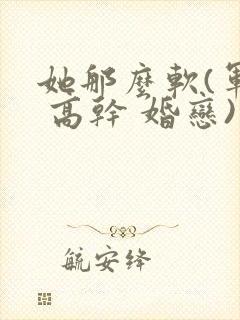 她那麼軟(軍
高幹 婚戀)
航安绛